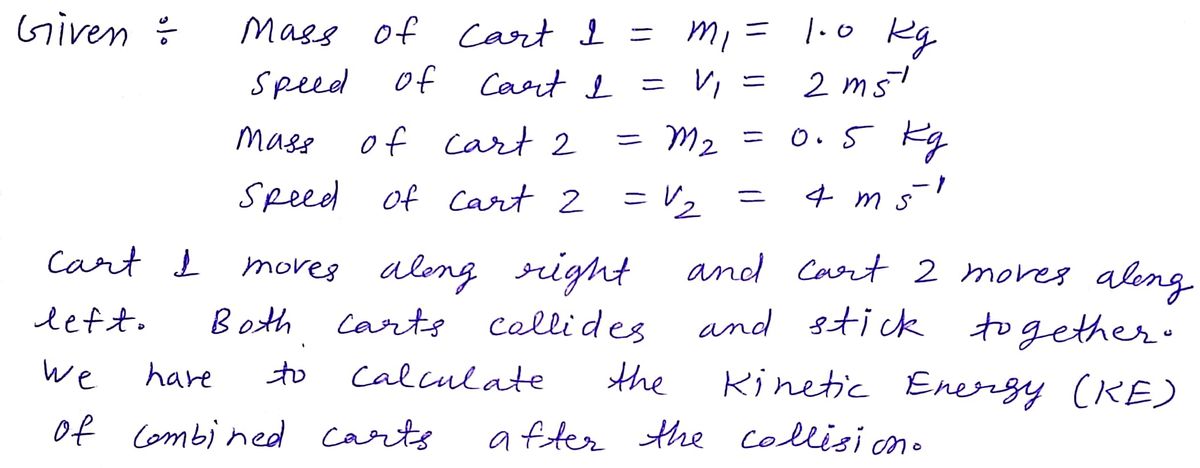 Given ÷ Mass of Cart 1 = m₁ = 1.0 kg
Speed of Cart 1 = V₁ = 2 ms⁻¹
Mass of cart 2 = m₂ = 0.5 kg
Speed of cart 2 = V₂ = 4 ms⁻¹
Cart 1 moves along right and cart 2 moves along
left. Both carts collides and stick together.
We have to calculate the Kinetic Energy (KE)
of combined carts after the collision.